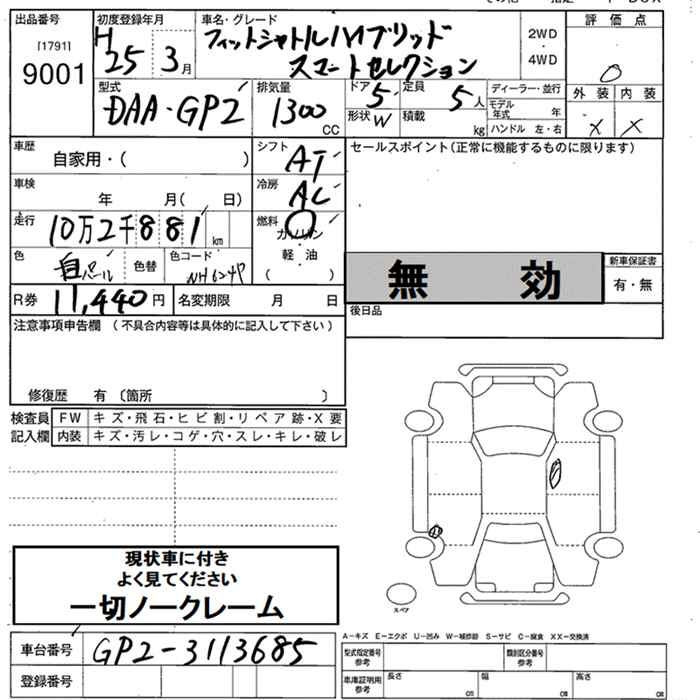 出品番号
[1791]
9001
初度登録年月
H 25 3月
車名・グレード
フィットシャトルハイブリッド
スマートセレクション
2WD
・
4WD
評価点
0
外装 内装
X X
型式
DAA-GP2
排気量
1300 CC
ドア 5 定員 5人
形状 W 積載 kg
ディーラー・並行
モデル年式 年
ハンドル 左・右
車歴 自家用・( )
シフト AT
セールスポイント(正常に機能するものに限ります)
車検 年 月( 日)
冷房 AC
走行 10万2千881 km
燃料 ガソリン
・
軽油
( )
色 白パール 色替 色コード NH624P
無効
新車保証書
有・無
R券 11,440円 名変期限 月 日
後日品
注意事項申告欄 (不具合内容等は具体的に記入して下さい)
修復歴 有 (箇所 )
検査員 FW キズ・飛石・ヒビ割・リペア跡・X要
記入欄 内装 キズ・汚レ・コゲ・穴・スレ・キレ・破レ
現状車に付き
よく見てください
一切ノークレーム
スペア
車台番号 GP2-3113685
登録番号
A-キズ E-エクボ U-凹み W-補修跡 S-サビ C-腐食 XX-交換済
型式指定番号 参考 類別区分番号 参考
車庫証明用 参考 長さ cm 幅 cm 高さ cm